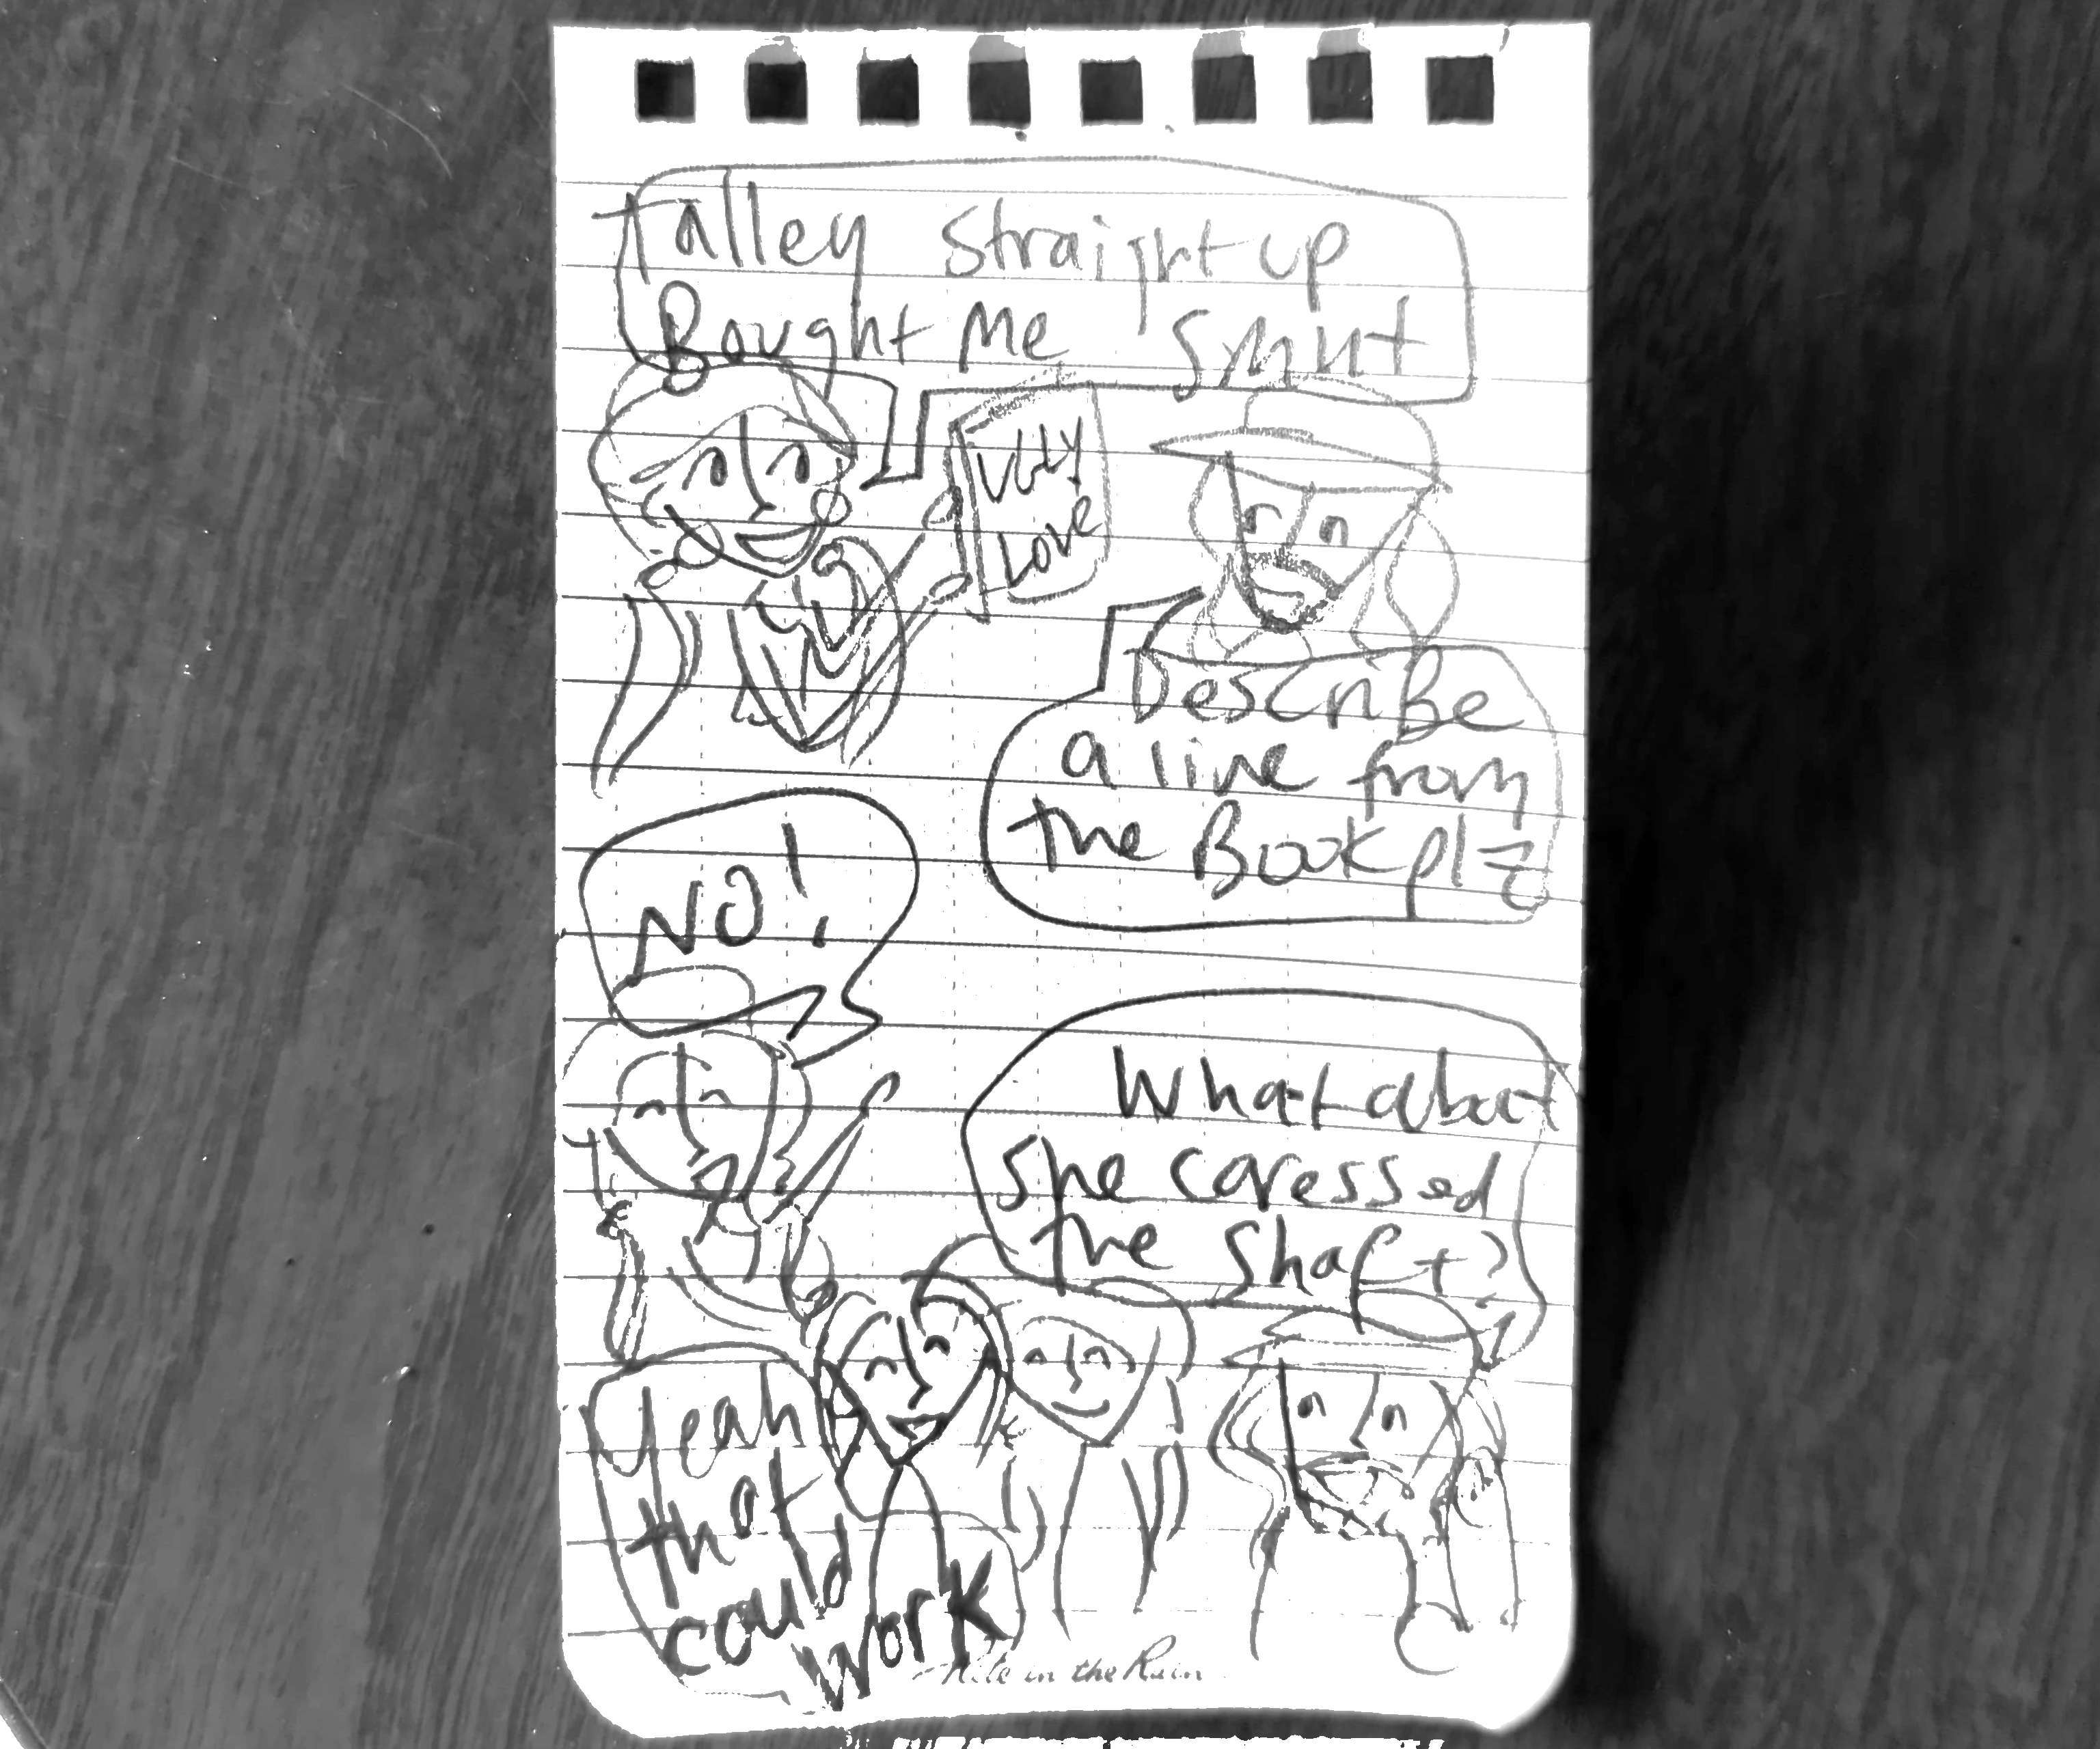 Talley straight up
Bought Me Smut
UGLY
LOVE
Describe
a line from
the Book plz
NO!
What about
she caressed
the shaft?
Yeah
that
could
work
Rite in the Rain